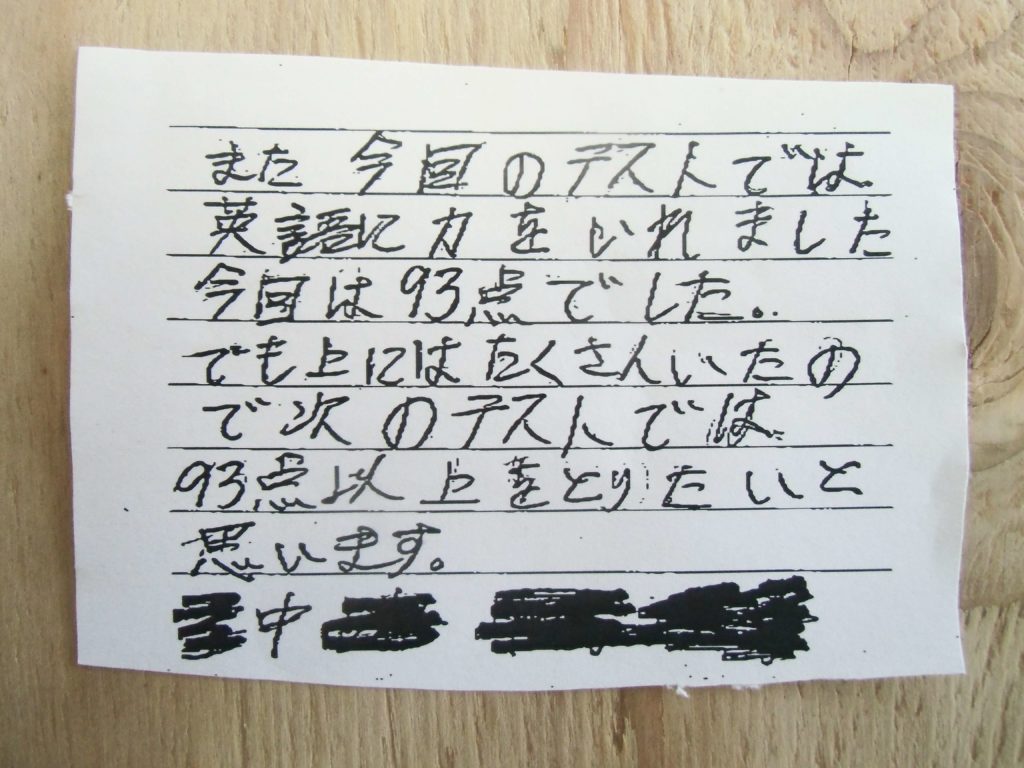 また今回のテストでは
英語に力をいれました
今回は93点でした。
でも上にはたくさんいたの
で次のテストでは
93点以上をとりたいと
思います。
中